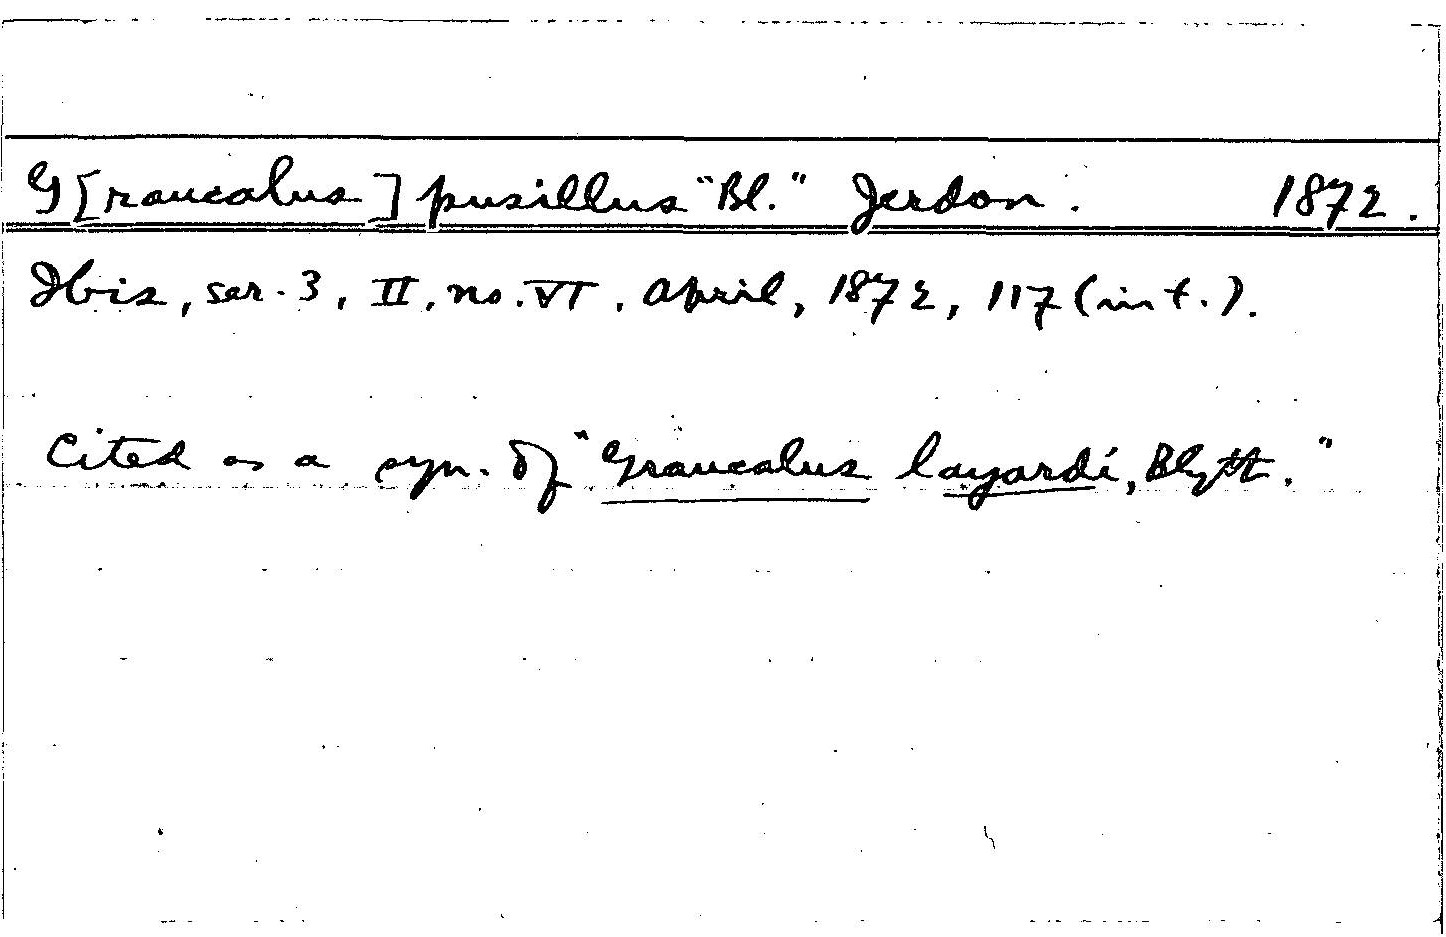 G[raucalus] pusillus "Bl." Jerdon. 1872.
Ibis, ser. 3, II, no. VI. April, 1872, 117 (in t.).
Cited as a syn. of "Graucalus layardi, Blyth."